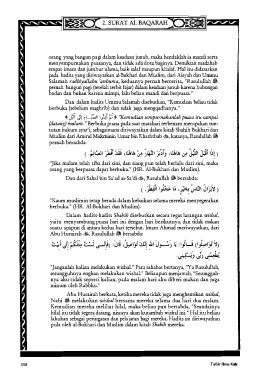 2. SURAT AL BAQARAH
orang yang bangun pagi dalam keadaan junub, maka hendaklah ia mandi serta
menyempurnakan puasanya, dan tidak ada dosa baginya. Demikian madzhab
empat imam dan jumhur ulama, baik salaf maupun khalaf. Hal itu didasarkan
pada hadits yang diriwayatkan al-Bukhari dan Muslim, dari Aisyah dan Ummu
Salamah radhiyallahu 'anhuma, keduanya pernah bercerita, "Rasulullah ﷺ
pernah bangun pagi (setelah terbit fajar) dalam keadaan junub karena hubungan
badan dan bukan karena mimpi, lalu beliau mandi dan berpuasa."
Dan dalam hadits Ummu Salamah disebutkan, "Kemudian beliau tidak
berbuka (sebelum maghrib) dan tidak juga mengqadhanya."
﴿ ثُمَّ أَتِمُّوا الصِّيَامَ إِلَى اللَّيْلِ ﴾ "Kemudian sempurnakanlah puasa itu sampai
(datang) malam." Berbuka puasa pada saat matahari terbenam merupakan
hukum syar'i, sebagaimana diriwayatkan dalam kitab Shahih Bukhari dan
Muslim dari Amirul Mukminin Umar bin Khaththab, katanya, Rasulullah ﷺ
pernah bersabda:
( إِذَا أَقْبَلَ اللَّيْلُ مِنْ هَاهُنَا، وَأَدْبَرَ النَّهَارُ مِنْ هَاهُنَا، فَقَدْ أَفْطَرَ الصَّائِمُ. )
"Jika malam telah tiba dari sini, dan siang pun telah berlalu dari sini, maka
orang yang berpuasa dapat berbuka." (HR. Al-Bukhari dan Muslim).
Dan dari Sahal bin Sa'ad as-Sa'idi, Rasulullah ﷺ bersabda:
( لاَ يَزَالُ النَّاسُ بِخَيْرٍ، مَا عَجَّلُوا الْفِطْرَ. )
"Kaum muslimin tetap berada dalam kebaikan selama mereka menyegerakan
berbuka." (HR. Al-Bukhari dan Muslim).
Dalam hadits-hadits Shahih disebutkan secara tegas larangan wishal,
yaitu menyambung puasa hari ini dengan hari berikutnya, dan tidak makan
suatu apapun di antara kedua hari tersebut. Imam Ahmad meriwayatkan, dari
Abu Hurairah, Rasulullah ﷺ bersabda:
"Janganlah kalian melakukan wishal." Para sahabat bertanya, "Ya Rasulullah,
sesungguhnya engkau melakukan wishal." Beliau pun menjawab, "Sesungguh-
nya aku tidak seperti kalian, pada malam hari aku diberi makan dan juga
minum oleh Rabbku."
Abu Hurairah berkata, ketika mereka tidak juga menghentikan wishal,
Nabi ﷺ melakukan wishal bersama mereka selama dua hari dua malam.
Kemudian mereka melihat hilal, maka beliau pun bersabda, "Seandainya
hilal itu tidak segera datang, niscaya akan kutambah wishal ini." Hal itu beliau
lakukan sebagai peringatan dan pelajaran bagi mereka. Hadits ini diriwayatkan
pula oleh al-Bukhari dan Muslim dalam kitab Shahih mereka.
Tafsir Ibnu Katsir